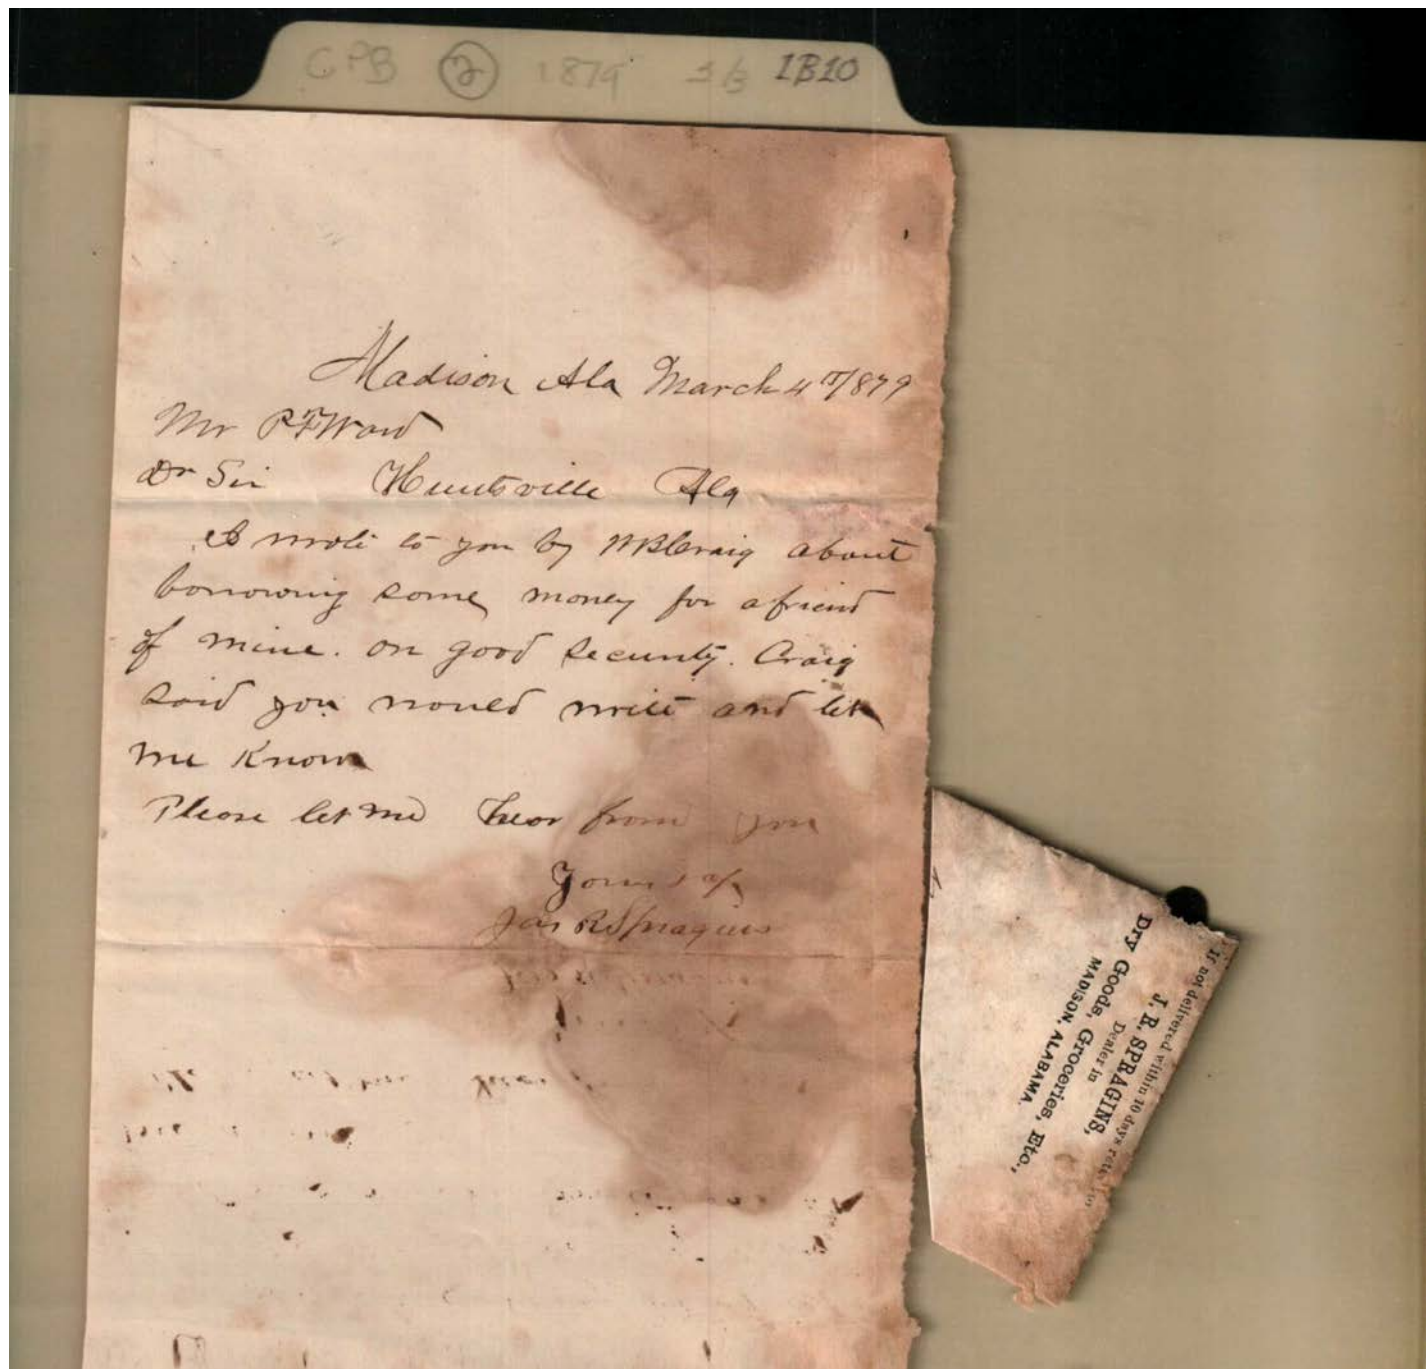 GPB 2 1879 1/3 1B10
Madison Ala March 4th/879
Mr P F Ward
Dr Sir Huntsville Ala
I wrote to you by W B Craig about
borrowing some money for a friend
of mine. on good security. Craig
said you would write and let
me Know
Please let me hear from you
Yours &c
Jas R Spragins
If not delivered within 10 days
J. R. SPRAGINS,
Dealer in
Dry Goods, Groceries, Etc.,
MADISON, ALABAMA.